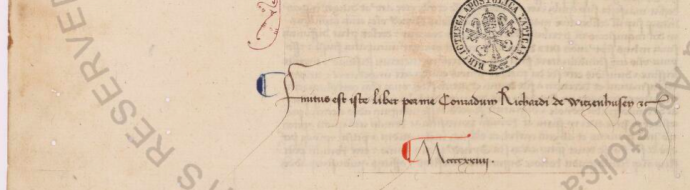 BIBLIOTHECA APOSTOLICA VATICANA
Finitus est iste liber per me Conradum Richardi de Witzenhusen &c
Mccccxxiiij.
S RESERVE
Apostolica